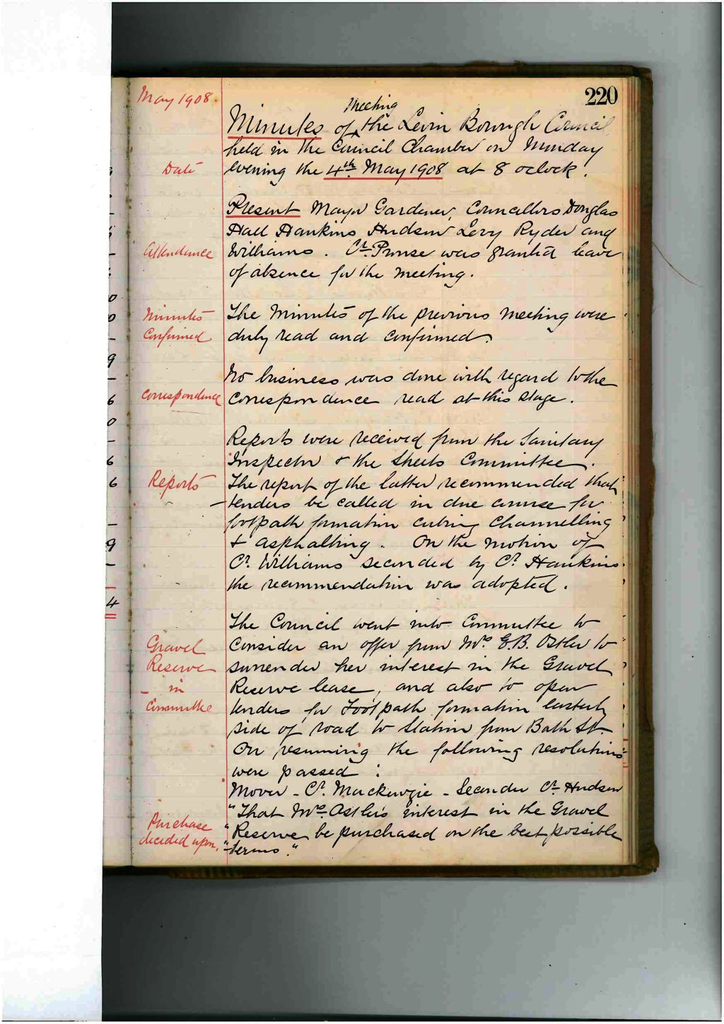 May 1908.
220
Meeting
Minutes of the Levin Borough Council
held in the Council Chamber on Monday
Date
evening the 4th May 1908 at 8 oclock.
Present Mayor Gardener, Councillors Douglas
Hall Hankins Hudson Levy Ryder and
Attendance
Williams. Cr. Prouse was granted leave
of absence for the meeting.
Minutes
Confirmed
The Minutes of the previous meeting were
duly read and confirmed.
No business was done with regard to the
Correspondence
Correspondence read at this stage.
Reports were received from the Sanitary
Inspector & the Streets Committee.
Reports
The report of the latter recommended that
tenders be called in due course for
footpath formation curbing Channelling
& asphalting. On the motion of
Cr. Williams seconded by Cr. Hankins
the recommendation was adopted.
The Council went into Committee to
Gravel
Reserve
in
Committee
Consider an offer from Mrs E.B. Ostler to
surrender her interest in the Gravel
Reserve lease, and also to open
tenders for Footpath formation easterly
side of road to Station from Bath St
On resuming the following resolutions
were passed:
Mover - Cr. Mackenzie - Seconder Cr. Hudson
Purchase
decided upon.
"That Mrs Ostler's interest in the Gravel
"Reserve be purchased on the best possible
"terms."